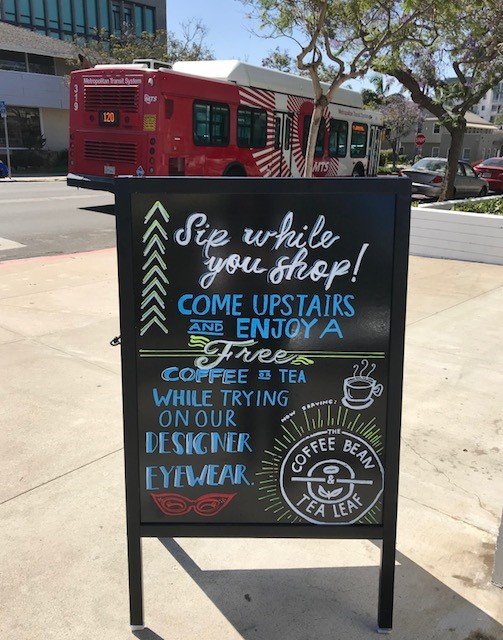 Metropolitan Transit System
319
MTS
120
MTS
Sip while
you shop!
COME UPSTAIRS
AND ENJOY A
Free
COFFEE OR TEA
WHILE TRYING
ON OUR
DESIGNER
EYEWEAR.
NOW SERVING:
THE
COFFEE BEAN
&
TEA LEAF